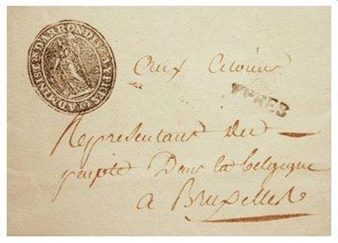 ADMINIST. D'ARROND. D'YPRES
Aux Citoiens
YPRES
Representans du
peuple Dans la belgique
a Bruxelles